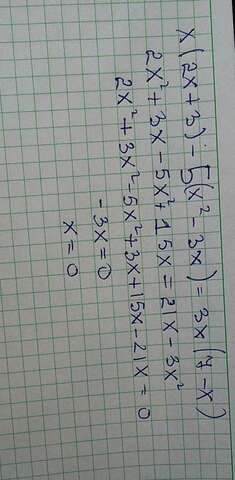 x(2x+3)-5(x²-3x)=3x(7-x)
2x²+3x-5x²+15x=21x-3x²
2x²+3x²-5x²+3x+15x-21x=0
-3x=0
x=0